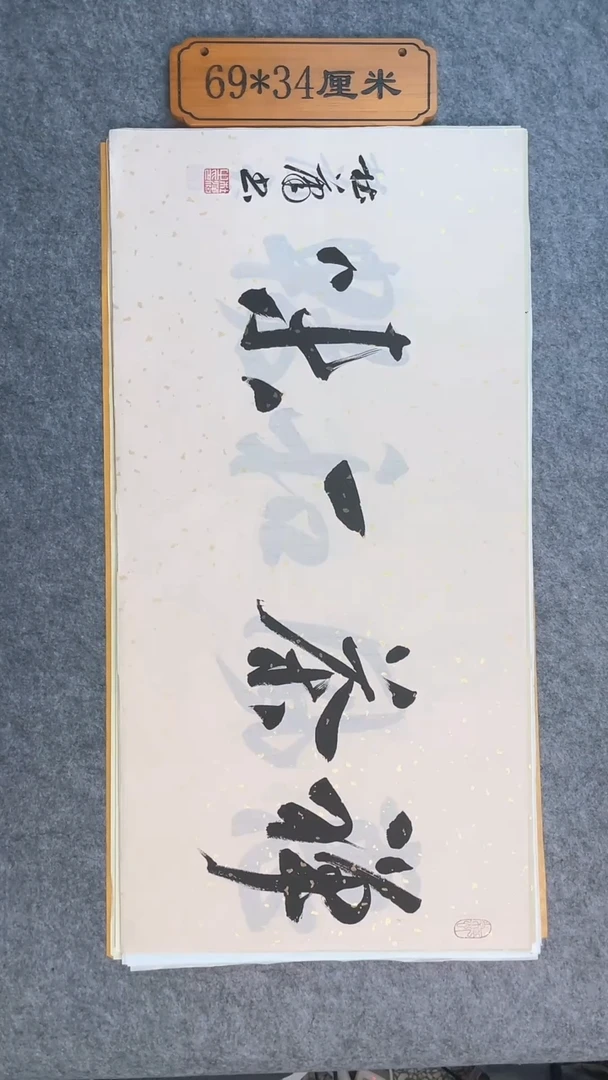 69*34厘米
禅茶一味
书